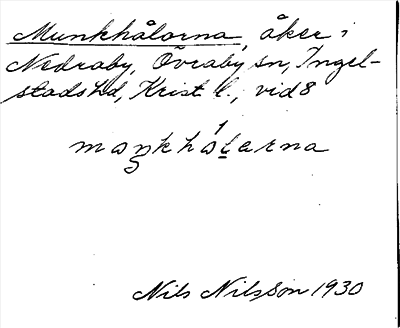 Munkhålorna, åker i
Nedraby, Övraby sn, Ingel-
stads hd, Krist l., vid 8
Nils Nilsson 1930